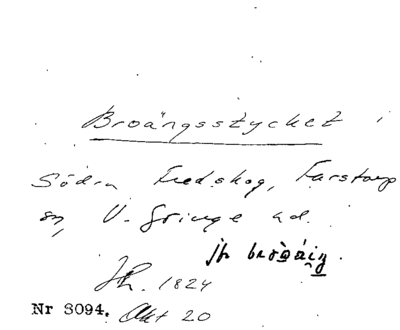 Broängsstycket i
Södra Fredskog, Farstorp
sn, V. Göinge hd.
Jh. 1824
Nr 3094. Akt 20